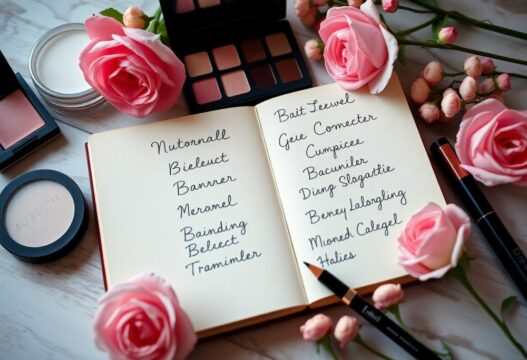 Nutornall
Bieleuct
Banrer
Meramel
Bainding
Belrect
Tramimler
Bait Teevel
Geue Comecter
Cumpicee
Bacuniler
Diung Slagattie
Beney Lalargling
Mioned Calegel
Halies